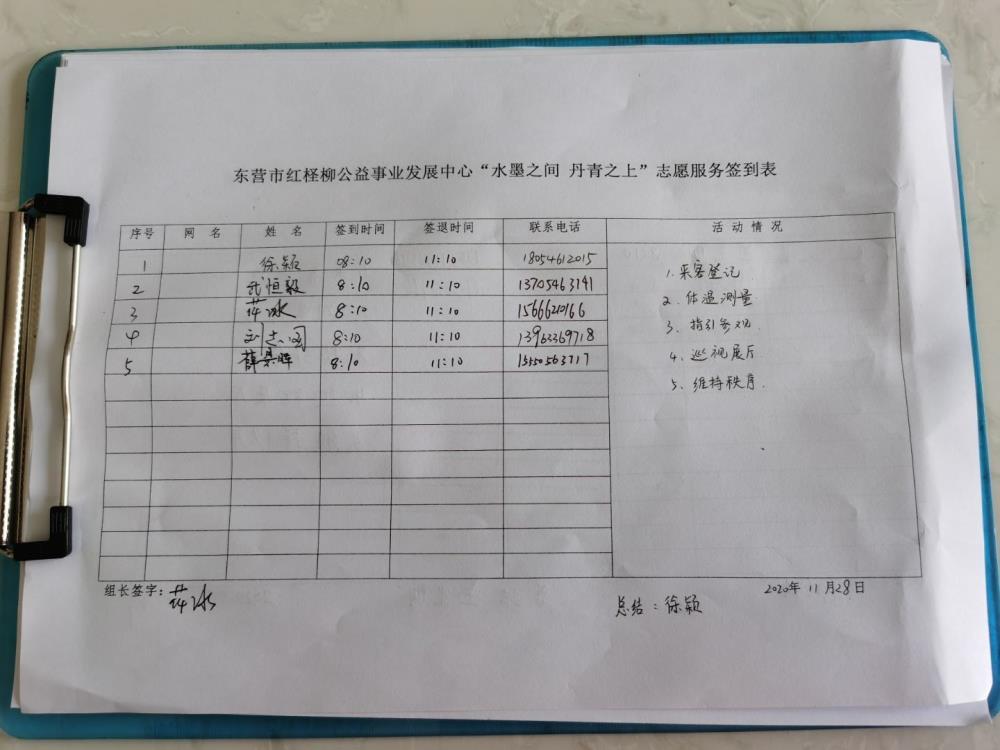 东营市红柽柳公益事业发展中心“水墨之间 丹青之上”志愿服务签到表
序号 网 名 姓 名 签到时间 签退时间 联系电话 活 动 情 况
1 徐颖 08:10 11:10 18054612015
2 武恒毅 8:10 11:10 13705463141
3 冰 8:10 11:10 15666210166
4 刘志国 8:10 11:10 13963369718
5 薛 8:10 11:10 15550563717
1. 来客登记
2. 体温测量
3. 指引参观.
4. 巡视展厅
5. 维持秩序.
组长签字: 冰
总结:徐颖
2020年 11月28日